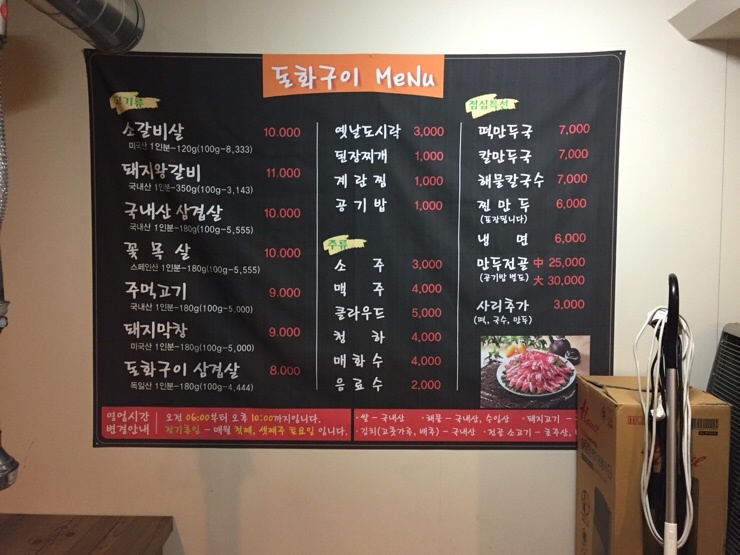 도화구이 MeNu
고기류
소갈비살 10.000
미국산 1인분-120g(100g-8,333)
돼지왕갈비 11.000
국내산 1인분-350g(100g-3,143)
국내산 삼겹살 10.000
국내산 1인분-180g(100g-5,555)
꽃목살 10.000
스페인산 1인분-180g(100g-5,555)
주먹고기 9.000
국내산 1인분-180g(100g-5,000)
돼지막창 9.000
미국산 1인분-180g(100g-5,000)
도화구이 삼겹살 8.000
독일산 1인분-180g(100g-4,444)
옛날도시락 3,000
된장찌개 1,000
계란찜 1,000
공기밥 1,000
주류
소주 3,000
맥주 4,000
클라우드 5,000
청하 4,000
매화수 4,000
음료수 2,000
점심특선
떡만두국 7,000
칼만두국 7,000
해물칼국수 7,000
찐만두 6,000
(포장됩니다)
냉면 6,000
만두전골 中 25,000
(공기밥 별도) 大 30,000
사리추가 3,000
(떡, 국수, 만두)
영업시간 변경안내
오전 06:00부터 오후 10:00까지입니다.
정기휴일 - 매월 첫째, 셋째주 토요일 입니다.
·쌀 - 국내산 ·해물 - 국내산, 수입산 ·돼지고기 -
·김치(고춧가루, 배추) - 국내산 ·전골 소고기 - 호주산,